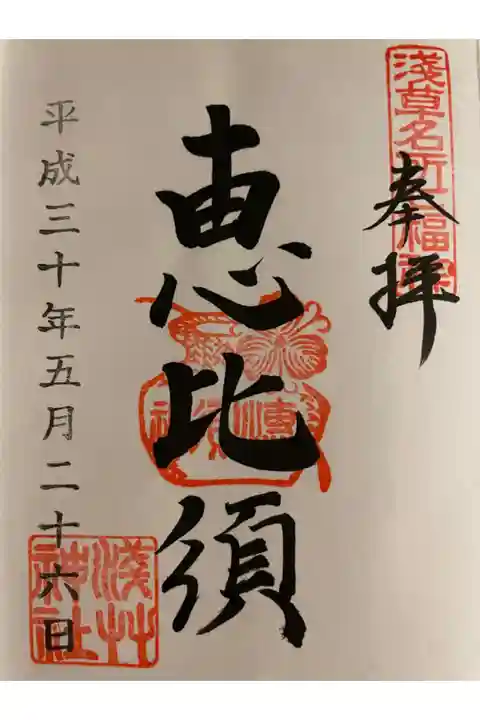 淺草名所七福詣
奉拝
恵比須
平成三十年五月二十六日
淺草神社